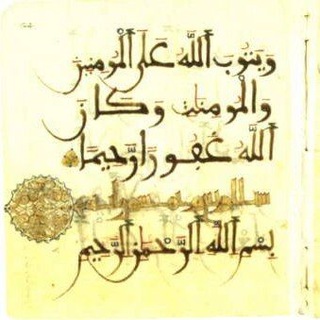 وَيَتُوبَ اَللَّهُ عَلَى اَلْمُومِنِينَ
وَالْمُومِنَتِ وَكَانَ
اَللَّهُ غَفُورًا رَّحِيمًا
بِسْمِ اِللَّهِ اِلرَّحْمَنِ اِلرَّحِيمِ